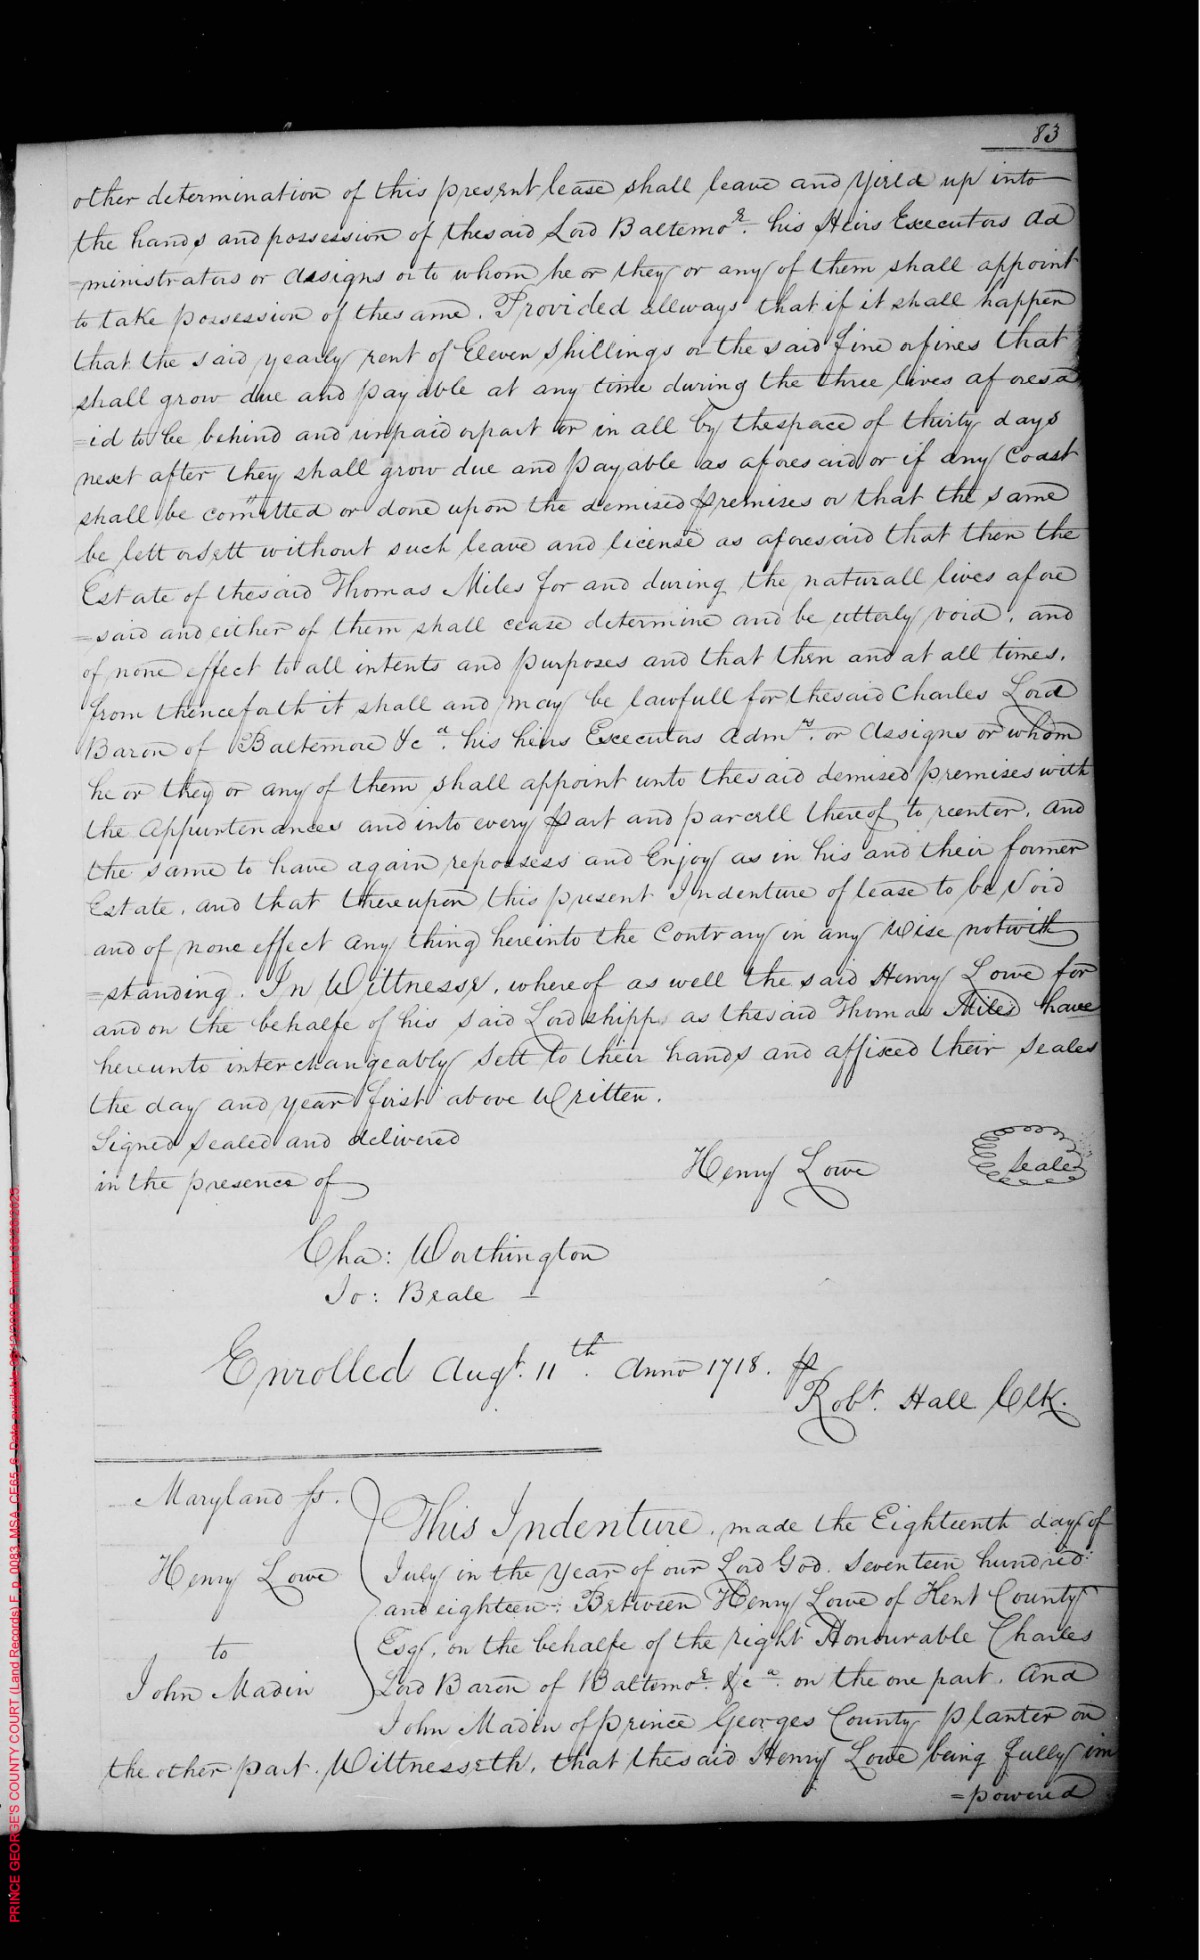 83
other determination of this present lease shall leave and Yield up into
the hands and possession of thesaid Lord Baltemoe. his Heirs Executors Ad
=ministrators or Assigns or to whom he or they or any of them shall appoint
to take possession of thesame. Provided allways that if it shall happen
that the said yearly rent of Eleven Shillings or the said fine orfines that
shall grow due and payable at any time during the three lives aforesa
=id to be behind and unpaid orpart or in all by thespace of thirty days
next after they shall grow due and payable as aforesaid or if any Coast
shall be comitted or done upon the demised premises or that the same
be lett orSett without such leave and license as aforesaid that then the
Estate of thesaid Thomas Miles for and during the naturall lives afore
=said and either of them shall cease determine and be utterly void, and
of none effect to all intents and purposes and that then and at all times,
from thenceforth it shall and may be lawfull for thesaid Charles Lord
Baron of Baltemore &ca. his heirs Executors Admrs. or Assigns or whom
he or they or any of them shall appoint unto thesaid demised premises with
the Appuntenances and into every part and parcell thereof to reenter, and
the same to have again repossess and Enjoy as in his and their former
Estate, and that thereupon this present Indenture of lease to be Void
and of none effect any thing hereinto the Contrary in any Wise notwith
=standing. In Wittnesse, whereof as well the said Henry Lowe for
and on the behalfe of his said Lordshipp as thesaid Thomas Miles have
hereunto interchangeably Sett to their hands and affixed their Seales
the day and year first above Written.
Signed Sealed and delivered
in the presence of
Henry Lowe
Seale
Cha: Worthington
Jo: Beale
Enrolled Augt. 11th. Anno 1718. p
Robt. Hall Clk.
Maryland ss.
Henry Lowe
to
John Madin
This Indenture, made the Eighteenth day of
July in the Year of our Lord God. Seventeen hundred
and eighteen: Between Henry Lowe of Kent County
Esqr. on the behalfe of the right Honourable Charles
Lord Baron of Baltemoe. &ca. on the one part. And
John Madin of prince Georges County Planter on
the other part. Wittnesseth, that thesaid Henry Lowe being fully im
=powered
PRINCE GEORGE'S COUNTY COURT (Land Records) F, p. 0083, MSA_CE65_6.